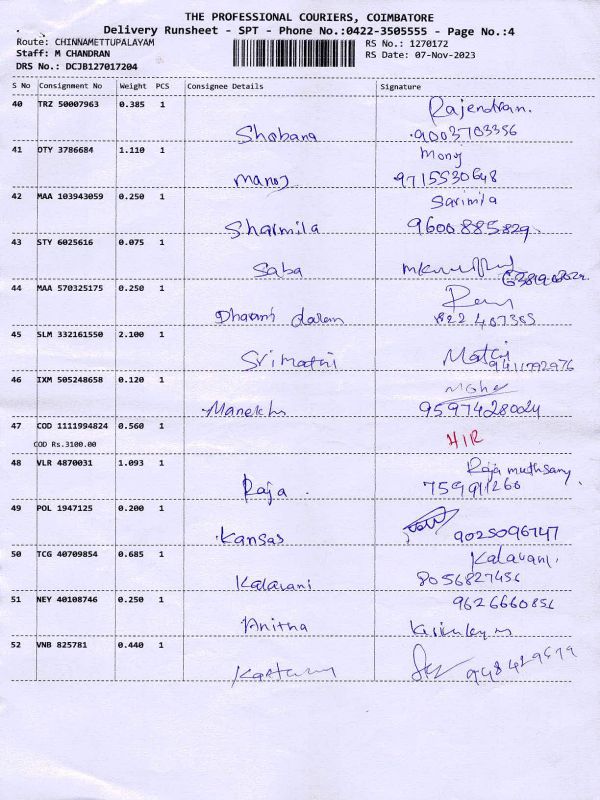 THE PROFESSIONAL COURIERS, COIMBATORE
Delivery Runsheet - SPT - Phone No.:0422-3505555 - Page No.:4
Route: CHINNAMETTUPALAYAM
RS No.: 1270172
Staff: M CHANDRAN
RS Date: 07-Nov-2023
DRS No.: DCJB127017204
S No Consignment No Weight PCS Consignee Details Signature
40 TRZ 50007963 0.385 1 Rajendran.
Shobana 9003703356
41 DTY 3786684 1.110 1 Manoj
Manoj 9715530648
42 MAA 103943059 0.250 1 Sarimila
Sharmila 9600885829
43 STY 6025616 0.075 1
Saba
44 MAA 570325175 0.250 1
Dharani daran 822407385
45 SLM 332161550 2.100 1
Srimathi Mathi 9411792976
46 IXM 505248658 0.120 1
9597428024
47 COD 1111994824 0.560 1 HIR
COD Rs.3100.00
48 VLR 4870031 1.093 1 Raja muthsamy
Raja 759911260
49 POL 1947125 0.200 1
Kansas 9025096747
50 TCG 40709854 0.685 1 Kalavani
Kalavani 8056827456
51 NEY 40108746 0.250 1 9626660856
Anitha
52 VNB 825781 0.440 1